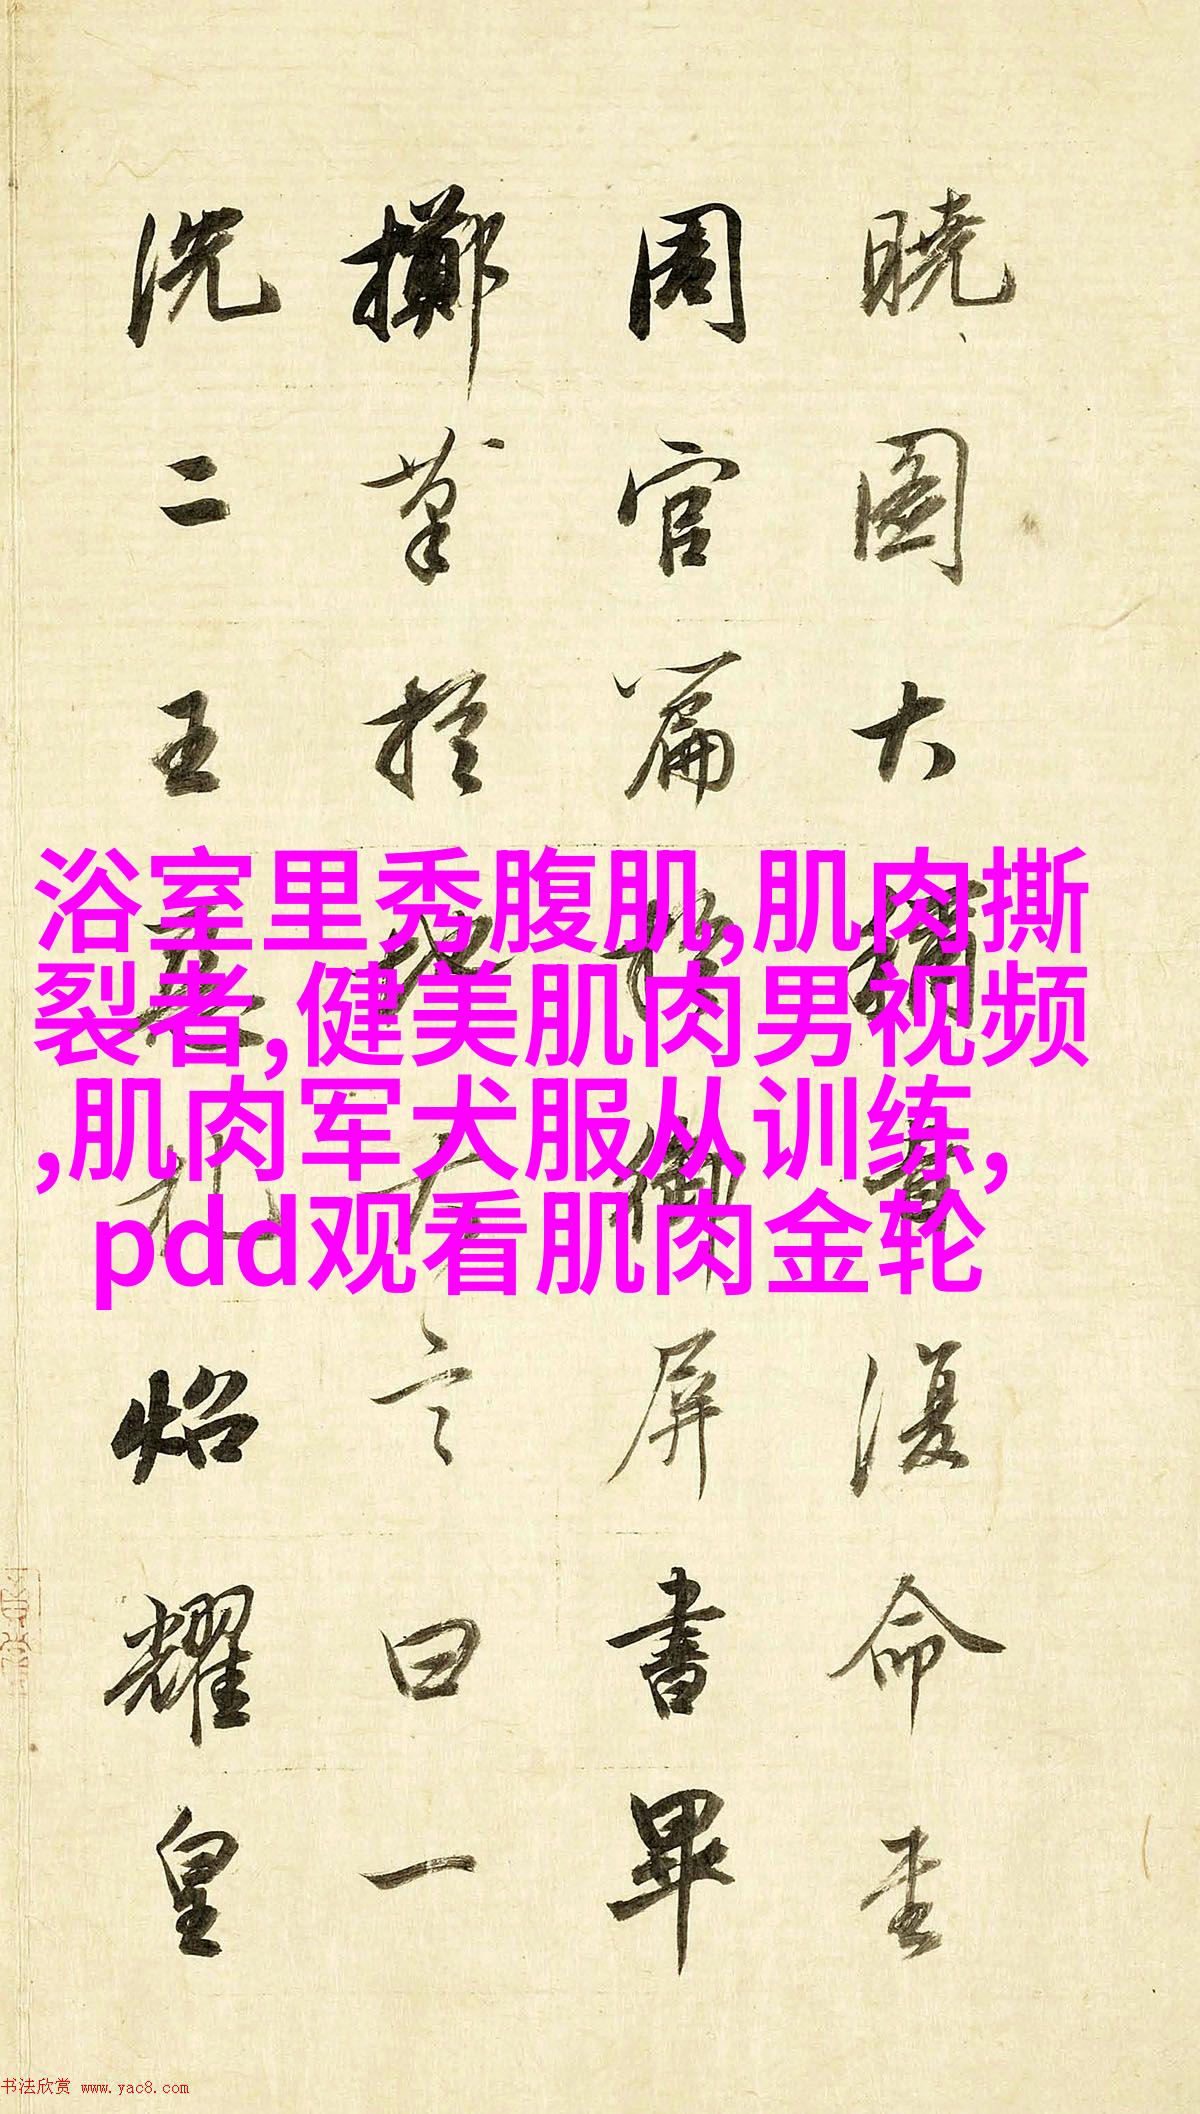 曉圖大稱復命書
周官篇於御屏書畢
擲筆於地大言曰一
洗二王惡札炤耀皇
浴室里秀腹肌,肌肉撕
裂者,健美肌肉男视频
,肌肉军犬服从训练,
pdd观看肌肉金轮
书法欣赏 www.yac8.com